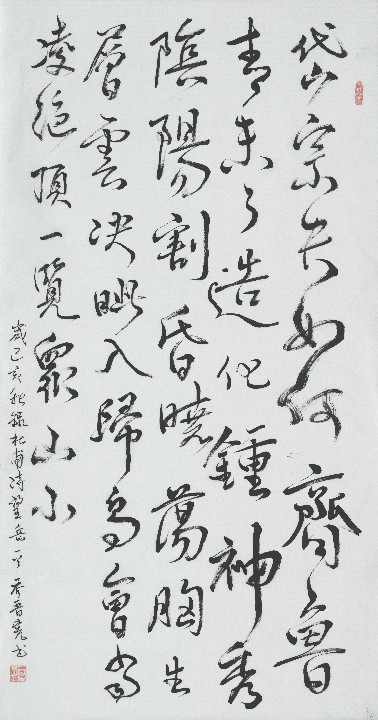 岱宗夫如何齊魯
青未了造化鍾神秀
陰陽割昏曉蕩胸生
層雲決眦入歸鳥會當
凌絕頂一覽眾山小
歲己亥秋錄杜甫詩望岳一首